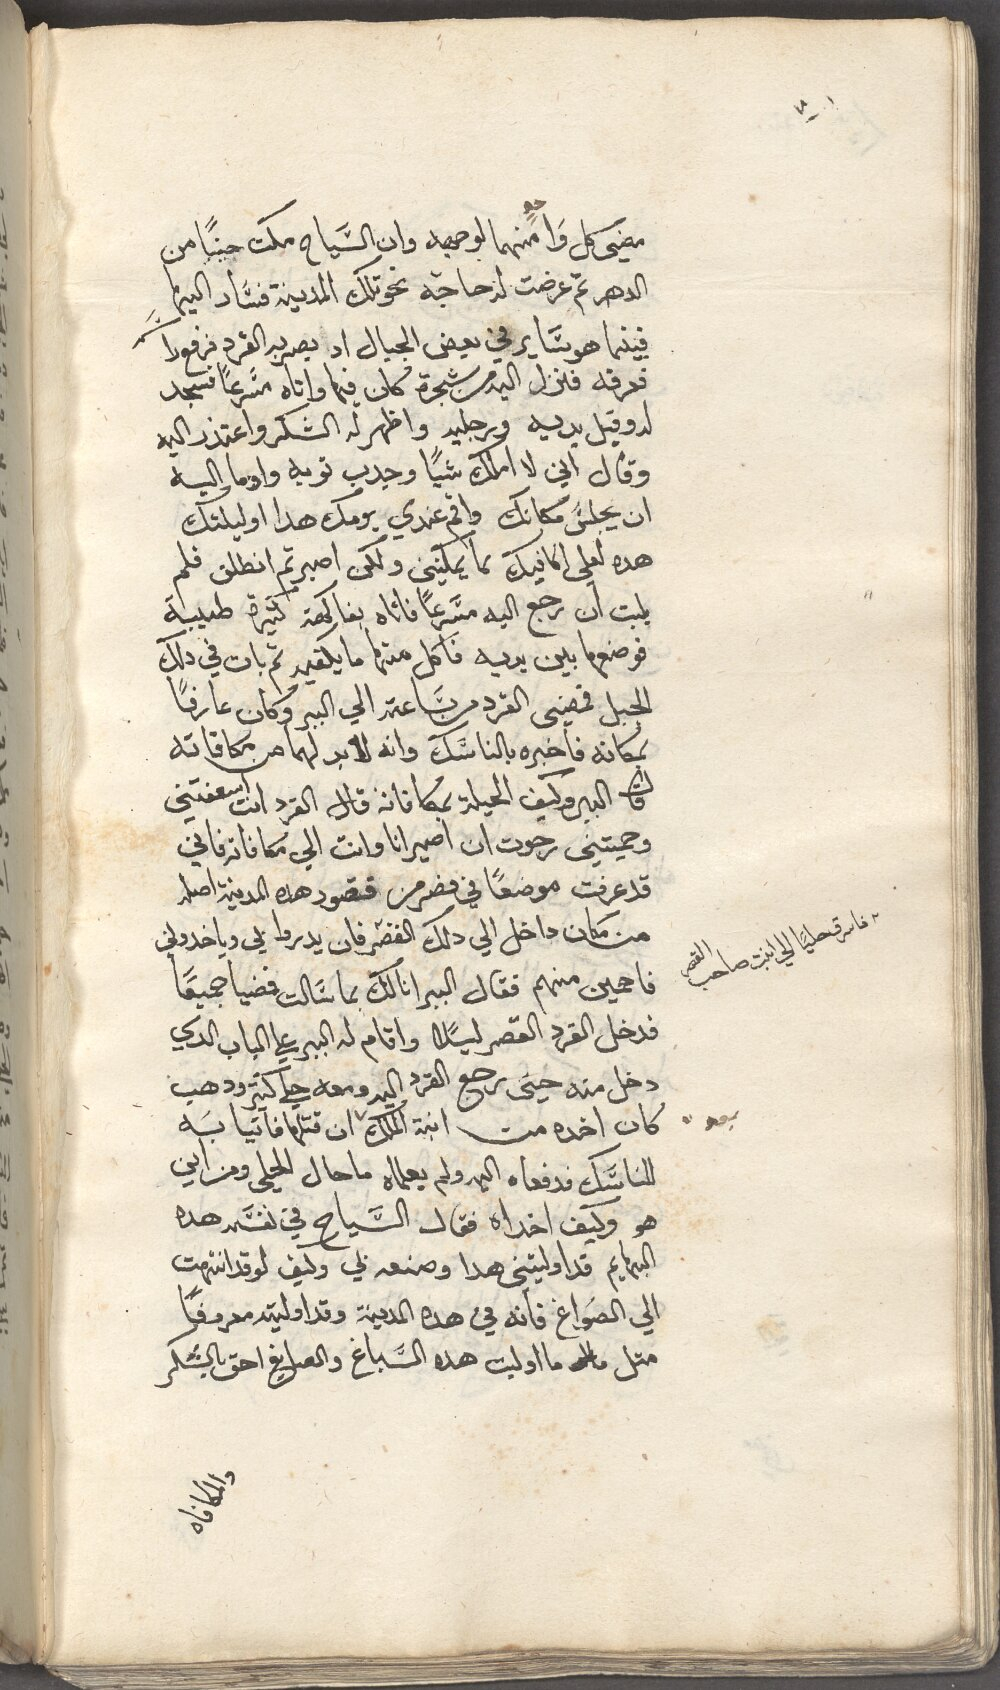 مضي كل واحد منهما لوجهه وان السَّياح مكث حينًا من
الدهر ثم عرضت له حاجة نحو تلك المدينة فسَّار اليها
فبينما هو سَّاير في بعض الجبال اد بصر به القرد فرفع راسه
فعرفه فنزل اليه من شجرة كان فيها واتاه مسَّرعًا فسَّجد
له وقبل يديه ورجليه واظهر له الشكر واعتدر اليه
وقال اني لا املك شيًا وجدب توبه واوما اليه
ان يجلسَّ مكانك واقم عندي يومك هدا او ليلتك
هده لعلي اكافيك بما يمكنني ولكن اصبر تم انطلق فلم
يلبت ان رجع اليه مسَّرعًا فاتاه بفاكهة كتيرة طيبة
فوضعها بين يديه فاكل منها ما يكفيه تم بات في دلك
الجبل فمضي القرد من سَّاعته الي الببر وكان عارفًا
بمكانه فاخبره بالناسَّك وانه لا بد لهما من مكافاته
قال الببر وكيف الحيلة بمكافاته قال القرد انت اسعفتني
وحميتني رجوت ان اصير انا وانت الي مكافاته فاني
قد عرفت موضعًا في قصر من قصور هده المدينة اصله
من مكان داخل الي دلك القصر فان يدروا بي وياخدوني
فاسرق حليًا الي ابنت صاحب القصر
فاحمين منهم فقال الببر انا لك بما سَّالت فمضيا جميعًا
فدخل القرد القصر ليلًا واقام له الببر علي الباب الدي
دخل منه حتى رجع القرد اليه ومعه حلي كتير ودهب
كان اخده من ابنة الملك ان قتلها فاتيا به
بعد
للناسَّك فدفعاه اليه ولم يعلماه ما حال الحلي ومن اين
هو وكيف اخداه فقال السَّياح في نفسَّه هده
البهايم قد اوليتني هدا وصنعه لي وكيف لو قد انتهيت
الي الصواغ فانه في هده المدينة وقد اوليته معروفًا
متل ما اوليت هده السَّباع والصايغ احق بالشكر
والمكافاه